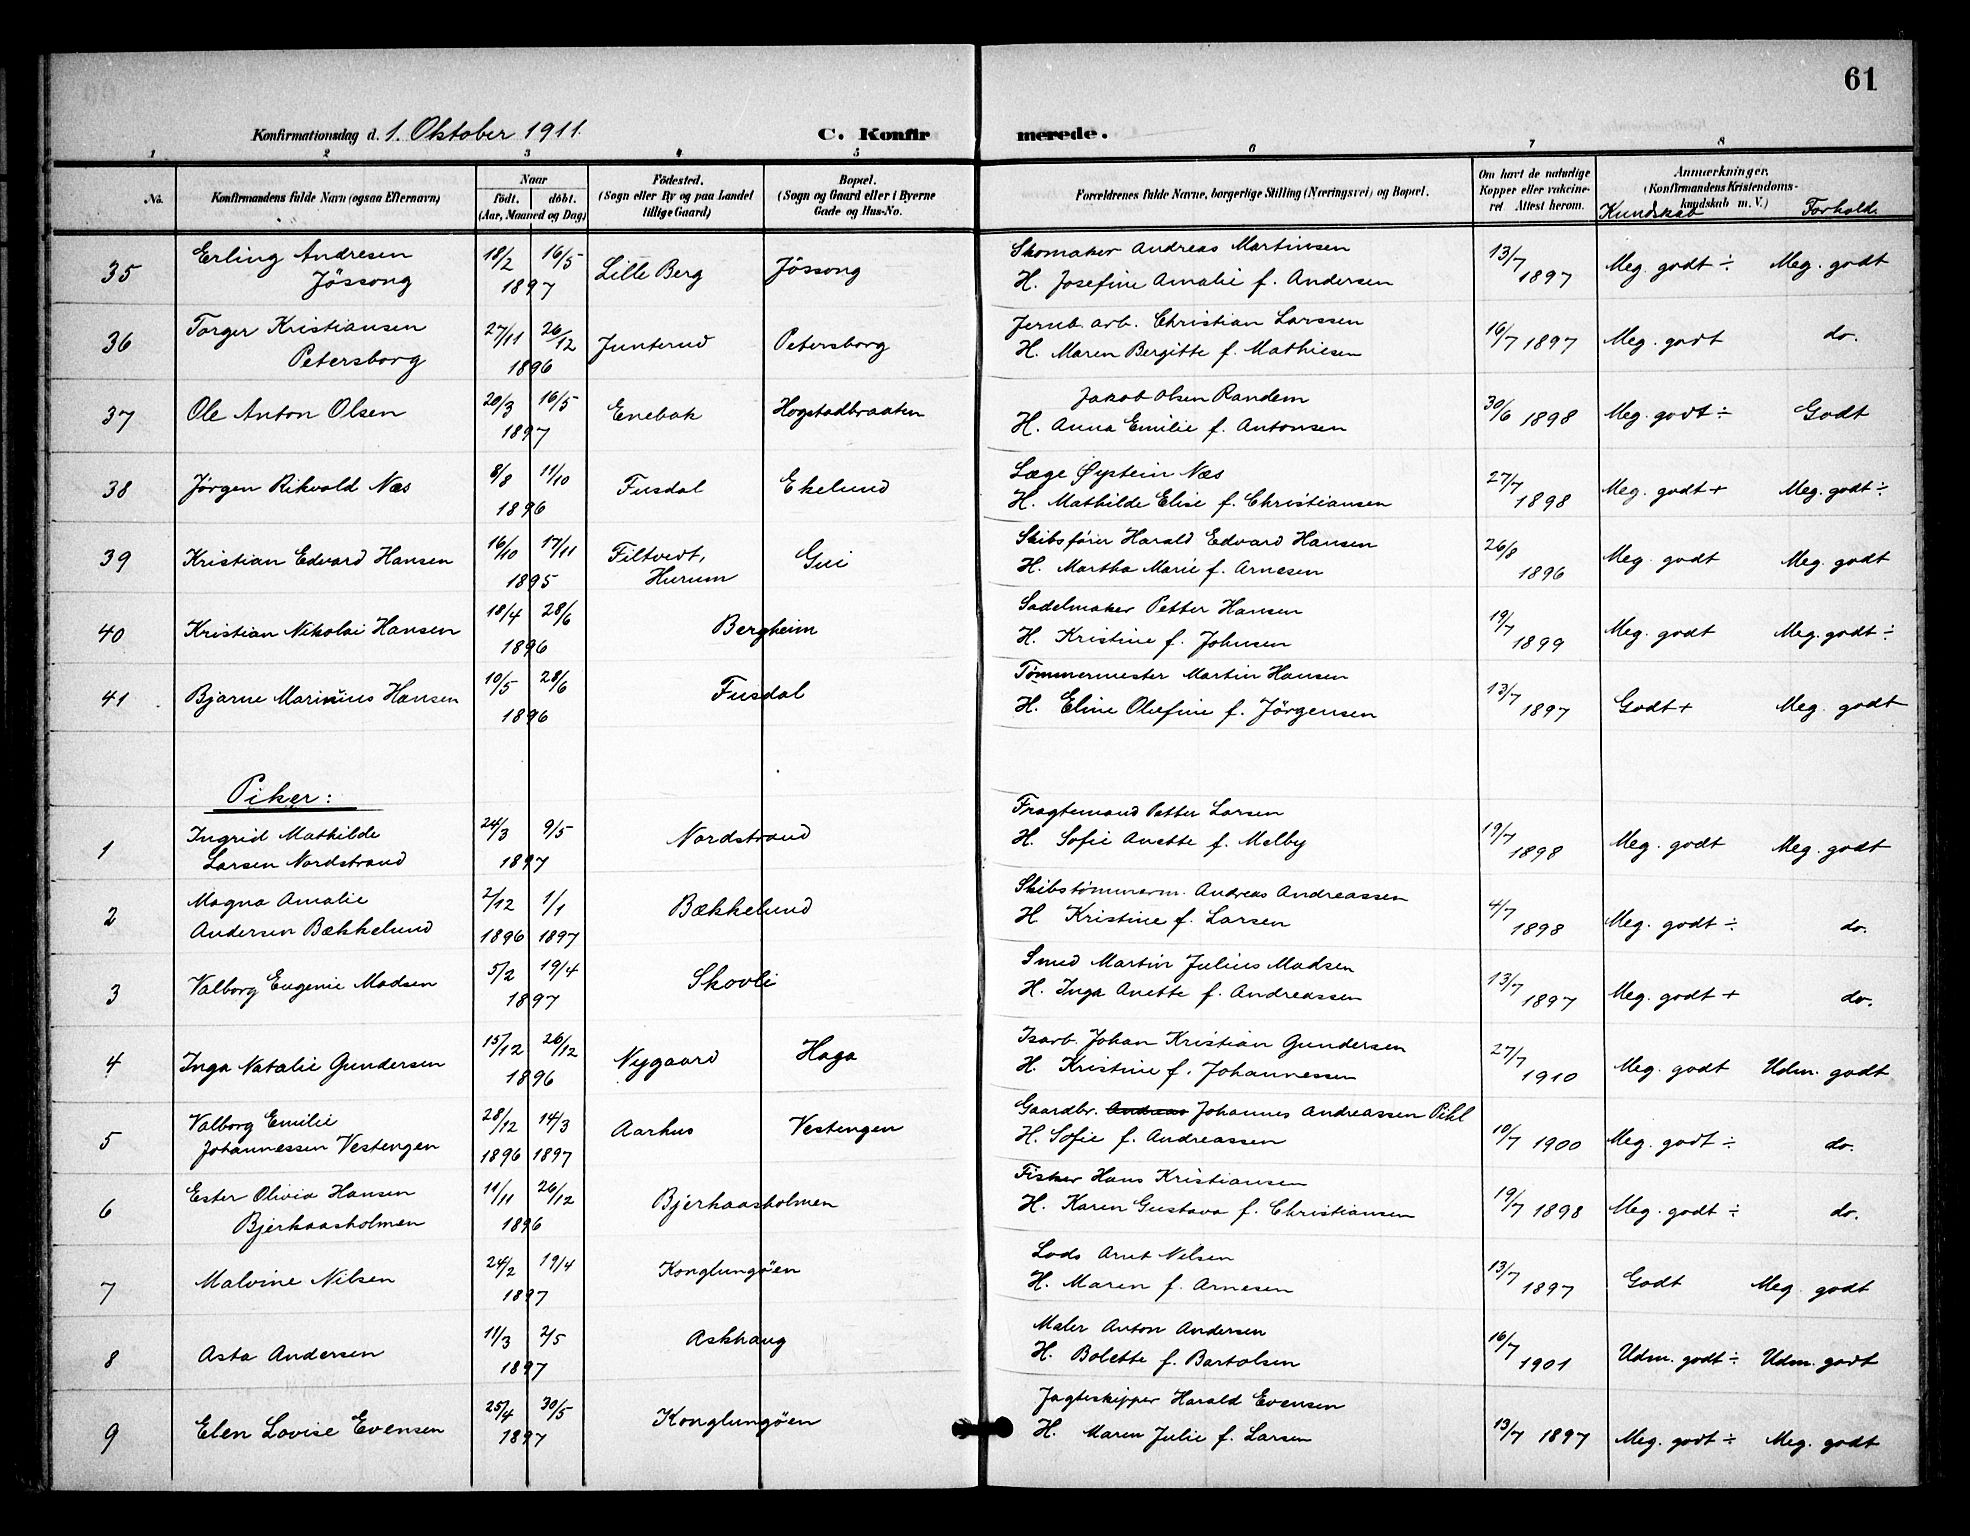 61
Konfirmationsdag d. 1. Oktober 1911. C. Konfirmerede.
1 2 3 4 5 6 7 8
No. Konfirmandens fulde Navn (ogsaa Efternavn) Naar født. døbt. (Aar, Maaned og Dag) Fødested. (Sogn eller By og paa Landet tillige Gaard) Bopæl. (Sogn og Gaard eller i Byerne Gade og Hus-No. Forældrenes fulde Navne, borgerlige Stilling (Næringsvei) og Bopæl. Om havt de naturlige Kopper eller vakcineret Attest herom. Anmærkninger. (Konfirmandens Kristendomskundskab m. V.) Kundskab Forhold.
35 Erling Andresen 18/2 16/5 Lille Berg Jössong Skomaker Andreas Martinsen 13/7 Meg. godt ÷ Meg. godt
Jössong 1897 H. Josefine Amalie f. Andersen 1897
36 Torger Kristiansen 27/11 26/12 Junterud Petersborg Jernb. arb. Christian Larssen 16/7 1897 Meg. godt do.
Petersborg 1896 H. Maren Bergitte f. Mathiesen
37 Ole Anton Olsen 20/3 16/5 Enebak Hogstadbraaten Jakob Olsen Randem 30/6 1898 Meg. godt ÷ Godt
1897 H. Anna Emilie f. Antonsen
38 Jörgen Rikvald Næs 8/8 11/10 Fusdal Ekelund Læge Øystein Næs 27/7 Meg. godt + Meg. godt ÷
1896 H. Mathilde Elise f. Christiansen 1898
39 Kristian Edvard Hansen 16/10 17/11 Filtvedt, Gui Skibsfører Harald Edvard Hansen 26/8 Meg. godt Meg. godt
1895 Hurum H. Martha Marie f. Arnesen 1896
40 Kristian Nikolai Hansen 18/4 28/6 Bergheim Sadelmaker Petter Hansen 19/7 Meg. godt Meg. godt ÷
1896 H. Kristine f. Johnsen 1899
41 Bjarne Marinius Hansen 10/5 28/6 Fusdal Tømmermester Martin Hansen 13/7 Godt + Meg. godt
1896 H. Eline Olefine f. Jörgensen 1897
Piker:
1 Ingrid Mathilde 24/3 9/5 Nordstrand Fragtemand Petter Larsen 19/7 Meg. godt Meg. godt
Larsen Nordstrand 1897 H. Sofie Anette f. Melby 1898
2 Magna Amalie 2/12 1/1 Bækkelund Skibstømmerm. Andreas Andreassen 4/7 Meg. godt ÷ do.
Andersen Bækkelund 1896 1897 H. Kristine f. Larsen 1898
3 Valborg Eugenie Madsen 5/2 19/4 Skovli Smed Martin Julius Madsen 13/7 Meg. godt + do.
1897 H. Inga Anette f. Andreassen 1897
4 Inga Natalie Gundersen 15/12 26/12 Nygaard Haga Isarb. Johan Kristian Gundersen 27/7 Meg. godt Udm. godt
1896 H. Kristine f. Johannessen 1910
5 Valborg Emilie 28/12 14/3 Aarhus Vestengen Gaardbr. Andreas Johannes Andreassen Pihl 10/7 1900 Meg. godt ÷ do.
Johannessen Vestengen 1896 1897 H. Sofie f. Andreassen
6 Ester Olivia Hansen 11/11 26/12 Bjerkaasholmen Fisker Hans Kristiansen 19/7 1898 Meg. godt ÷ do.
Bjerkaasholmen 1896 H. Karen Gustava f. Christiansen
7 Malvine Nilsen 24/2 19/4 Konglungøen Lods Arnt Nilsen 13/7 Godt Meg. godt
1897 H. Maren f. Arnesen 1897
8 Asta Andersen 11/3 2/5 Askhaug Maler Anton Andersen 16/7 Udm. godt ÷ Udm. godt
1897 H. Bolette f. Bartolsen 1901
9 Elen Lovise Evensen 25/4 30/5 Konglungøen Jagteskipper Harald Evensen 13/7 1897 Meg. godt ÷ Meg. godt
1897 H. Maren Julie f. Larsen